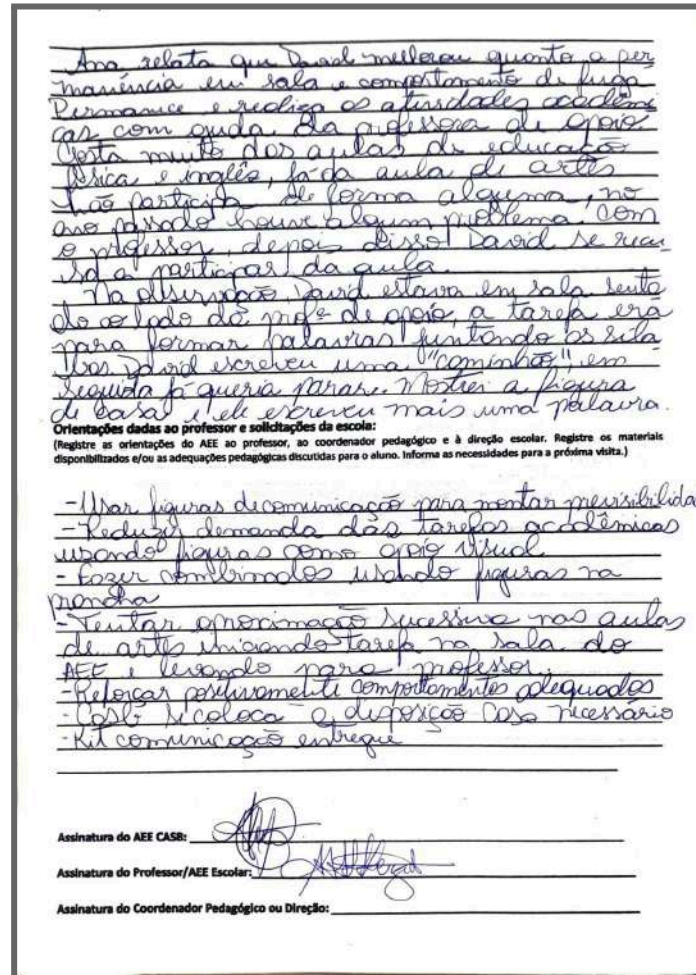 Ana relata que David melhorou quanto a per
manência em sala e comportamento de fuga
Permanece e realiza as atividades acadêmi
cas com ajuda da professora de apoio.
Gosta muito das aulas de educação
física e inglês, já da aula de artes
não participa de forma alguma, no
ano passado houve algum problema com
o professor, depois disso David se recu
sa a participar da aula.
Na observação David estava em sala senta
do ao lado da profª de apoio, a tarefa era
para formar palavras juntando as síla
bas David escreveu uma "caminhão", em
seguida já queria parar. Mostrei a figura
de casa e ele escreveu mais uma palavra.
Orientações dadas ao professor e solicitações da escola:
(Registre as orientações do AEE ao professor, ao coordenador pedagógico e à direção escolar. Registre os materiais
disponibilizados e/ou as adequações pedagógicas discutidas para o aluno. Informa as necessidades para a próxima visita.)
- Usar figuras de comunicação para montar previsibilida
- Reduzir demanda das tarefas acadêmicas
usando figuras como apoio visual
- Fazer combinados usando figuras na
prancha
- Tentar aproximação sucessiva nas aulas
de artes iniciando tarefa na sala do
AEE e levando para professor.
- Reforçar positivamente comportamentos adequados
- Casb se coloca a disposição caso necessário
- Kit comunicação entregue
Assinatura do AEE CASB:
Assinatura do Professor/AEE Escolar:
Assinatura do Coordenador Pedagógico ou Direção: